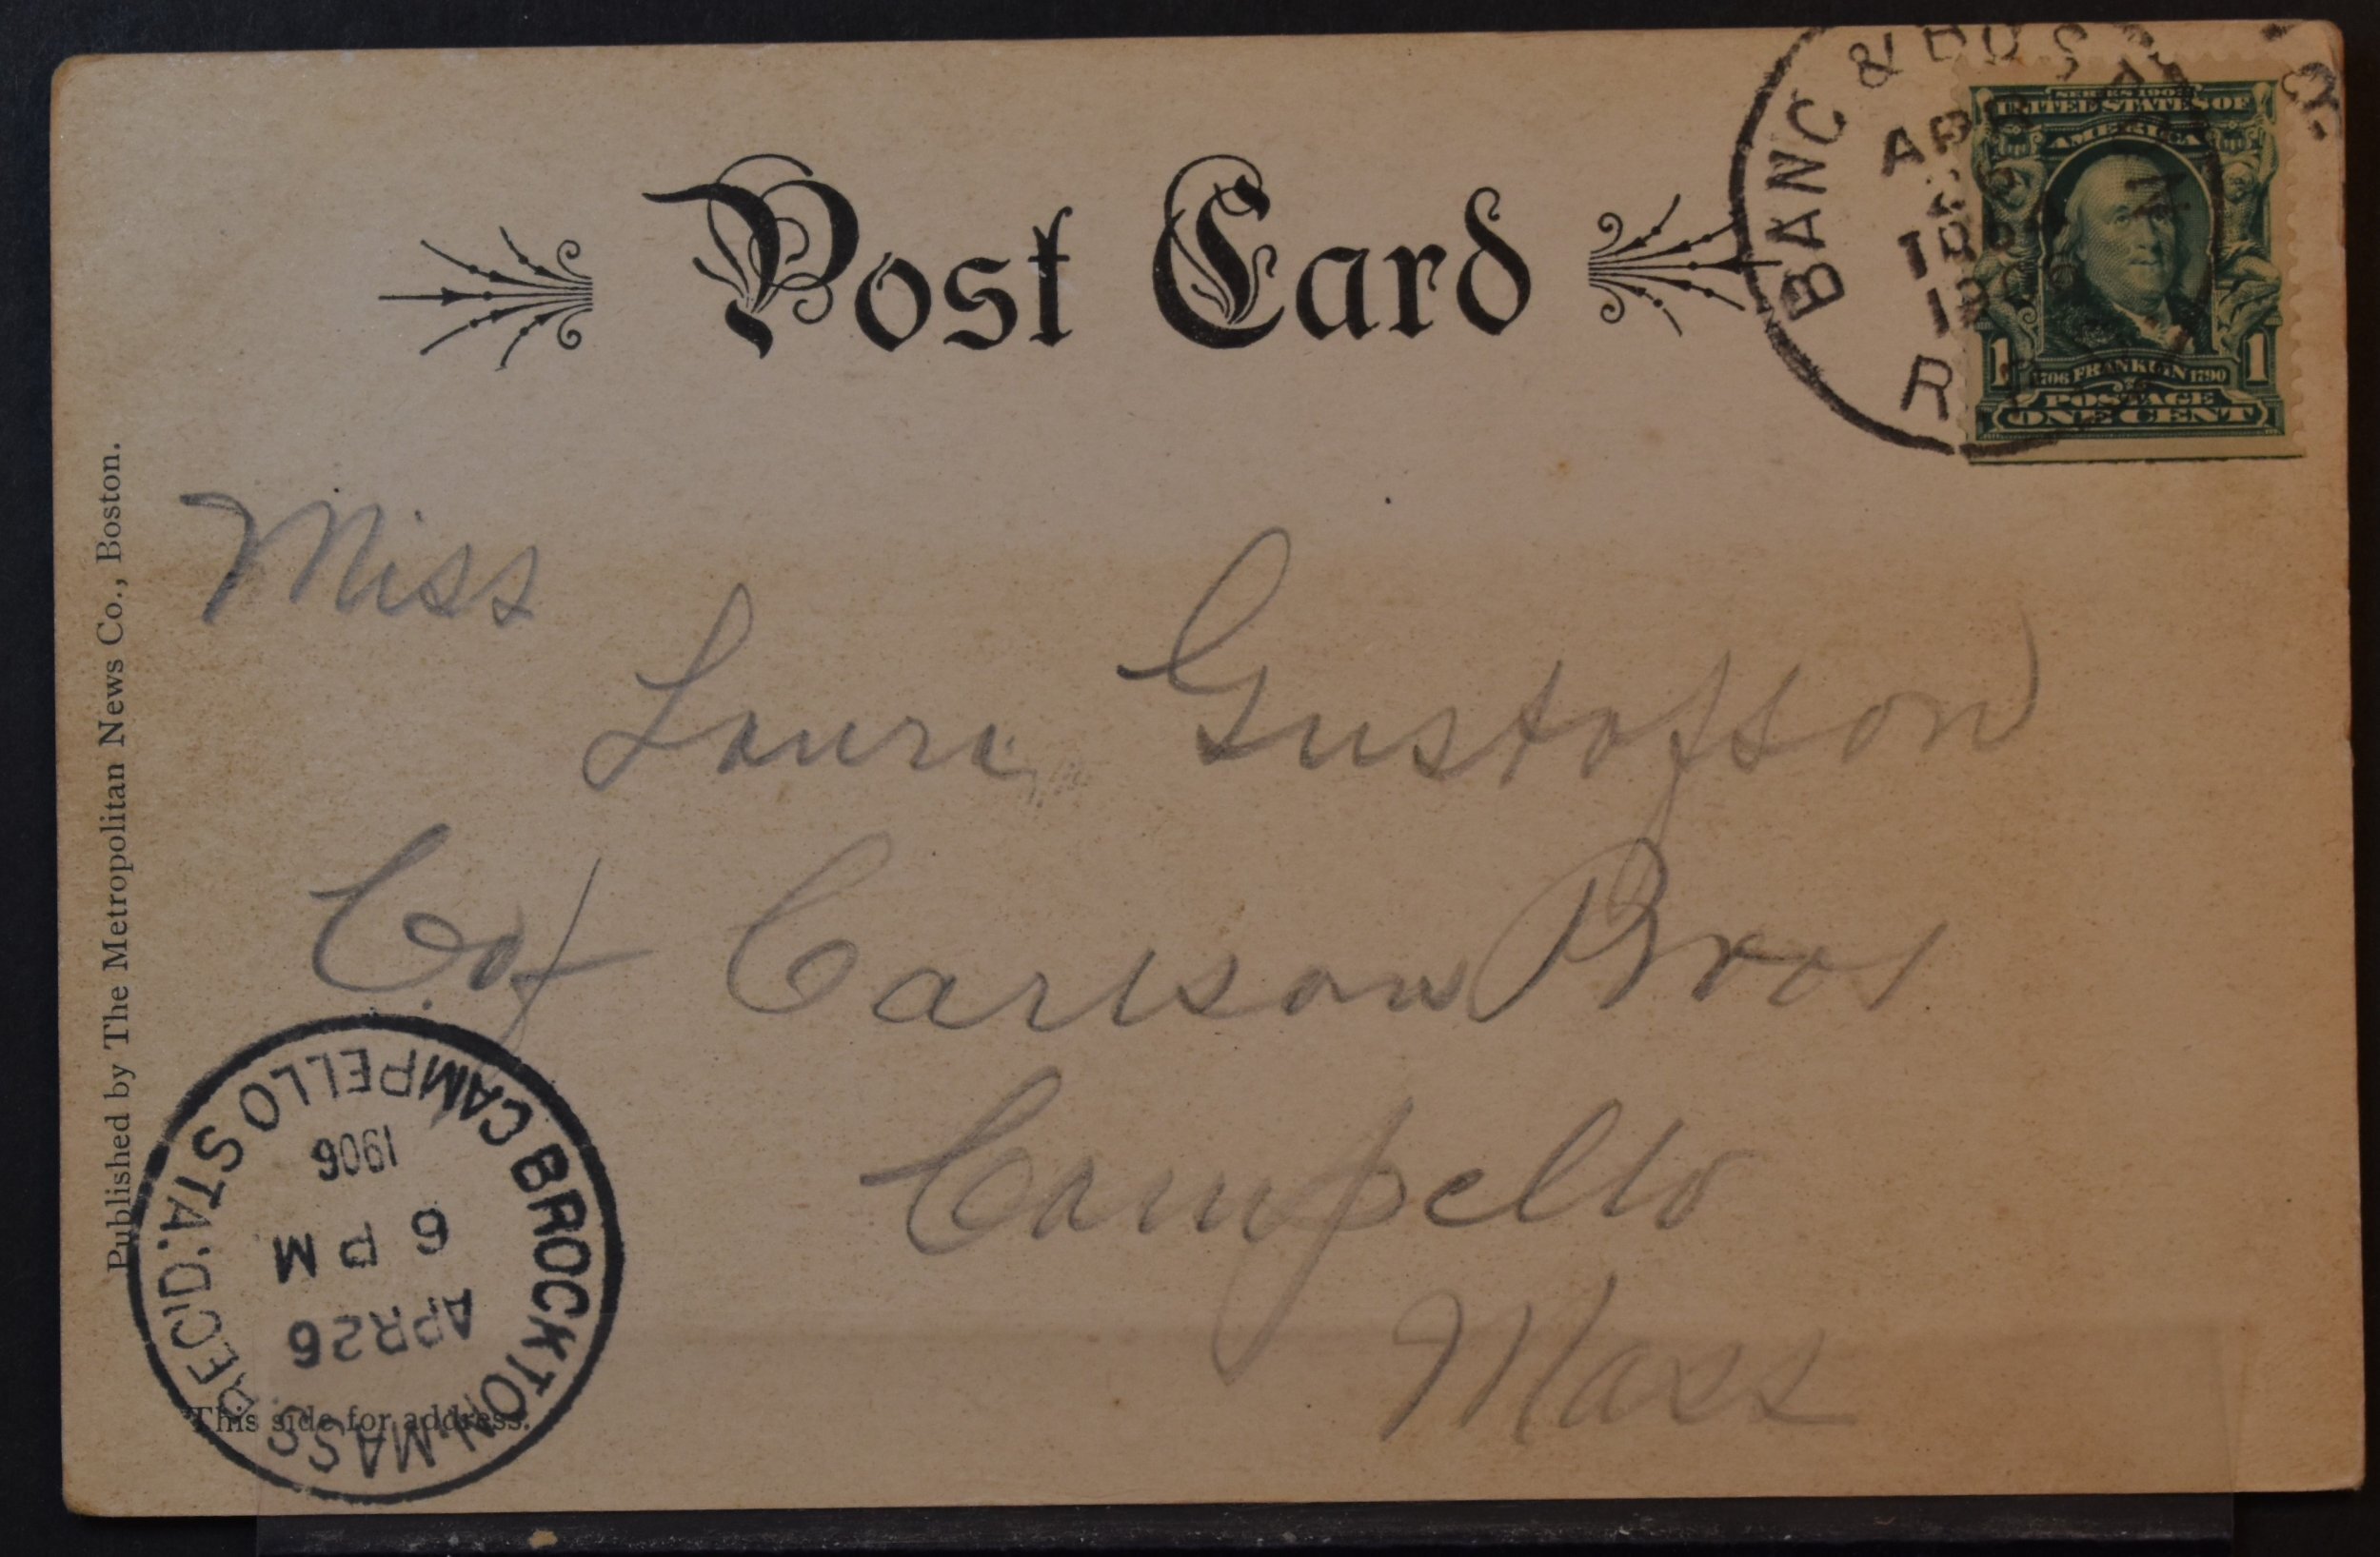 Post Card
BANG & BOS
APR
1906
R
SERIES 1902
UNITED STATES OF
AMERICA
1 1706 FRANKLIN 1790 1
POSTAGE
ONE CENT
Published by The Metropolitan News Co., Boston.
Miss
Laura Gustafsson
C of Carlson Bros
Campello
Mass
BROCKTON, MASS.
CAMPELLO STA.
REC'D.
APR 26
6 PM
1906
This side for address.